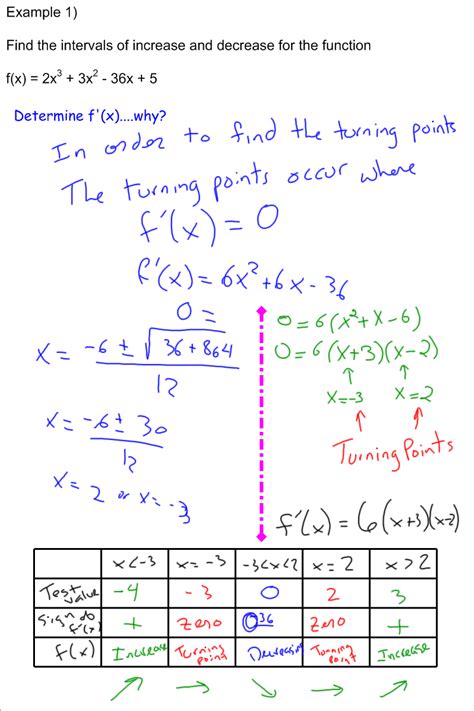 Example 1)
Find the intervals of increase and decrease for the function
f(x) = 2x³ + 3x² - 36x + 5
Determine f'(x)....why?
In order to find the turning points
The turning points occur where
f'(x) = 0
f'(x) = 6x² + 6x - 36
0 =
x = -6 ± √36 + 864
12
x = -6 ± 30
12
x = 2 or x = -3
0 = 6(x² + x - 6)
0 = 6(x+3)(x-2)
↑ ↑
x=-3 x=2
↑ ↑
Turning Points
f'(x) = 6(x+3)(x-2)
x<-3 x=-3 -3<x<2 x=2 x>2
Test Value -4 -3 0 2 3
Sign of f'(x) + Zero 36 Zero +
f(x) Increase Turning point Decreasing Turning Point Increase
↗ → ↘ → ↗